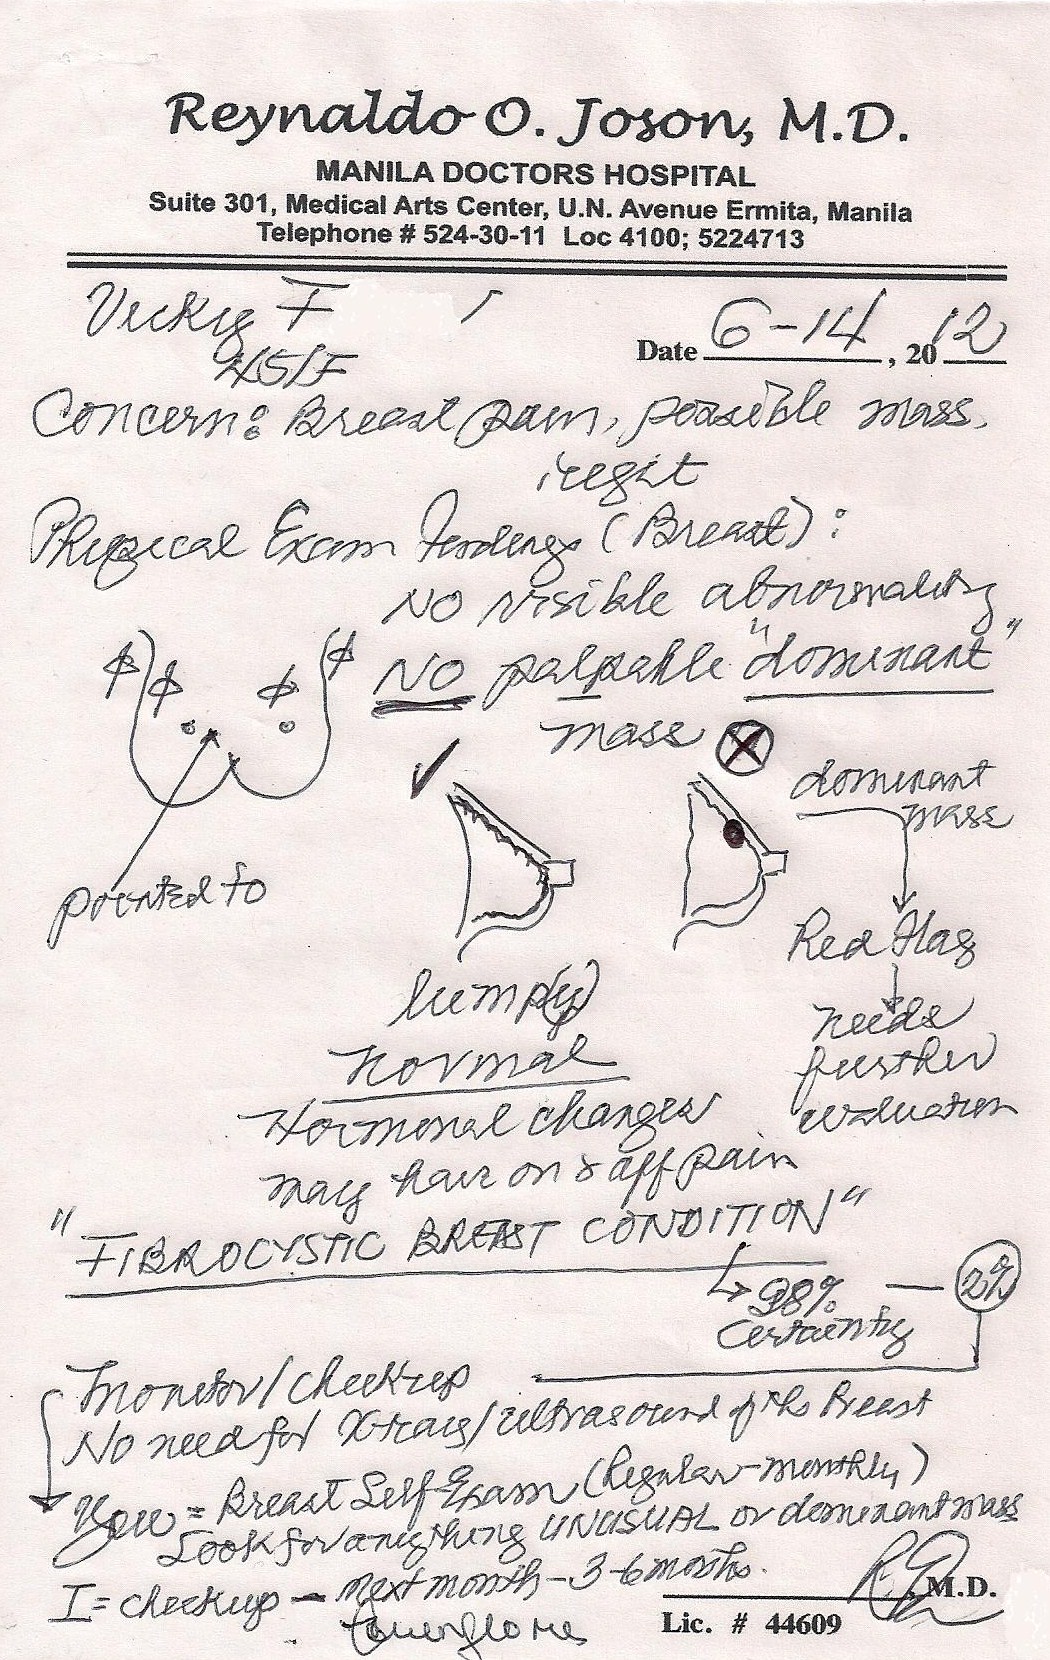 Reynaldo O. Joson, M.D.
MANILA DOCTORS HOSPITAL
Suite 301, Medical Arts Center, U.N. Avenue Ermita, Manila
Telephone # 524-30-11 Loc 4100; 5224713
Vicky F
45/F
Date 6-14, 2012
Concern: Breast pain, possible mass,
right
Physical Exam Findings (Breast):
NO visible abnormality
NO palpable "dominant"
mass
dominant
mass
pointed to
Red Flag
needs
further
evaluation
lump(y)
normal
Hormonal changes
may have on & off pain
"FIBROCYSTIC BREAST CONDITION"
98% — 2%
Certainty
Monitor/checkup
No need for X-ray/ultrasound of the Breast
You = Breast Self-Exam (Regular-monthly)
Look for anything UNUSUAL or dominant mass
I = checkup - next month - 3-6 months.
M.D.
Lic. # 44609